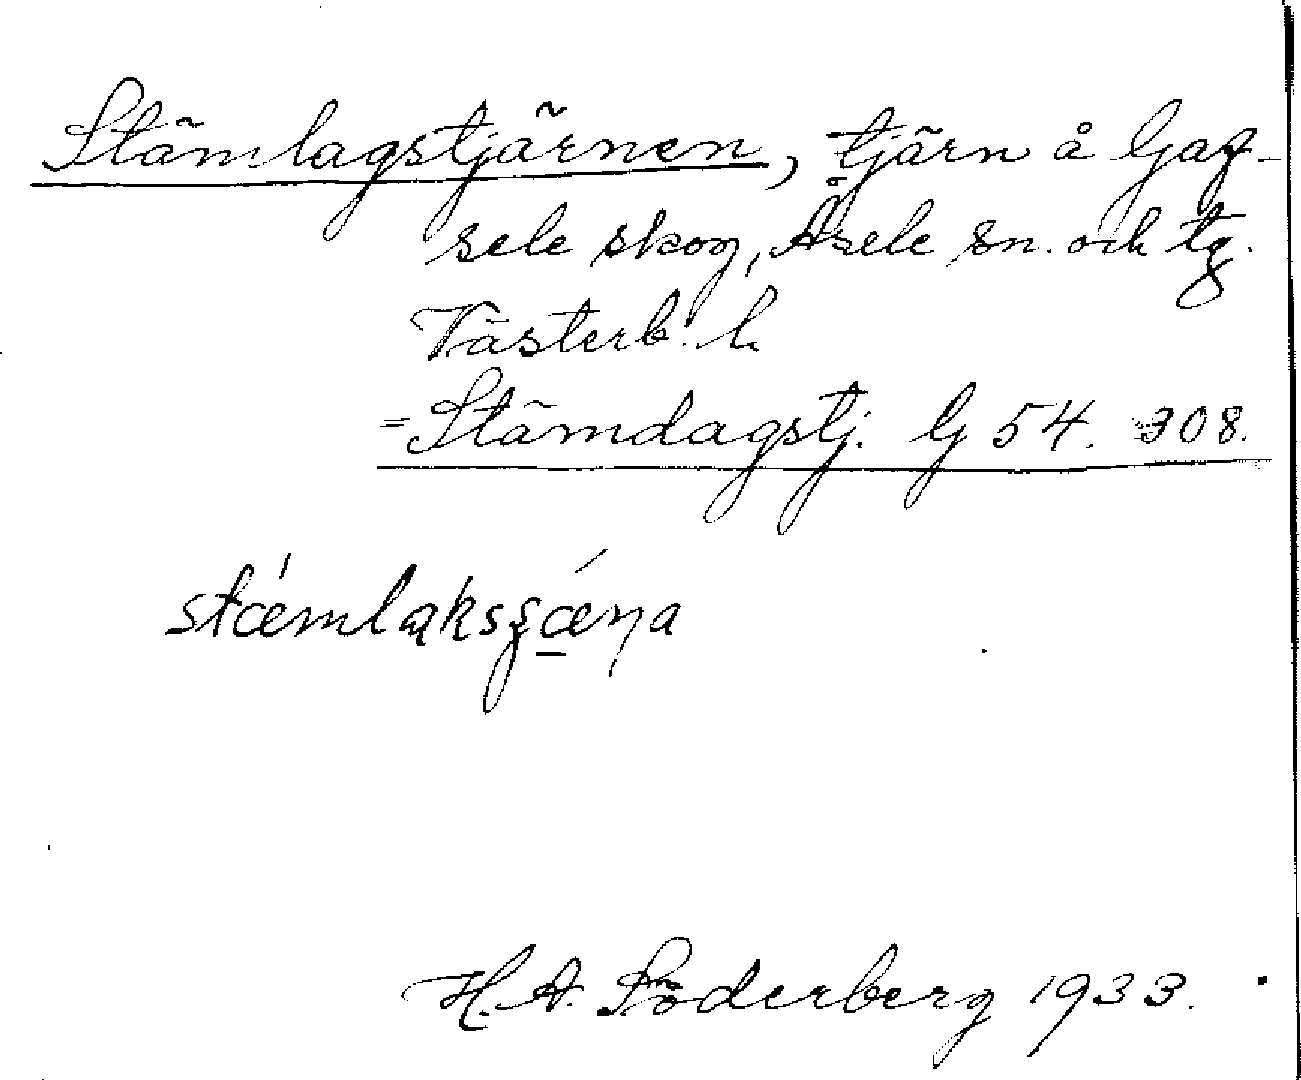 Stämlagstjärnen, tjärn å Gag-
sele skog, Åsele sn. och tg.
Västerb. l.
= Stämdagstj. G 54. 308.
H. A. Söderberg 1933.